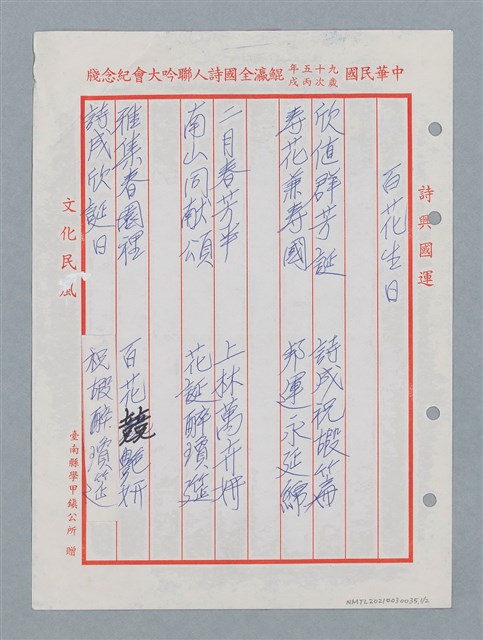 中華民國九十五年歲次丙戌鯤瀛全國詩人聯吟大會紀念牋
詩興國運
百花生日
欣值群芳誕 詩成祝嘏篇
壽花兼壽國 邦運永延綿
二月春芳半 上林萬卉妍
南山同献頌 花誕醉瓊筵
雅集春園裡 百花競艷妍
詩成欣誕日 祝嘏醉瓊筵
文化民風
臺南縣學甲鎮公所 贈